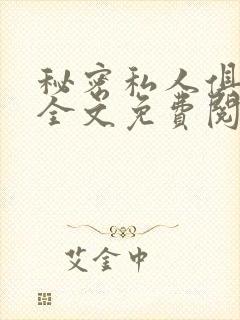 秘密私人俱
全文免费阅
艾金中